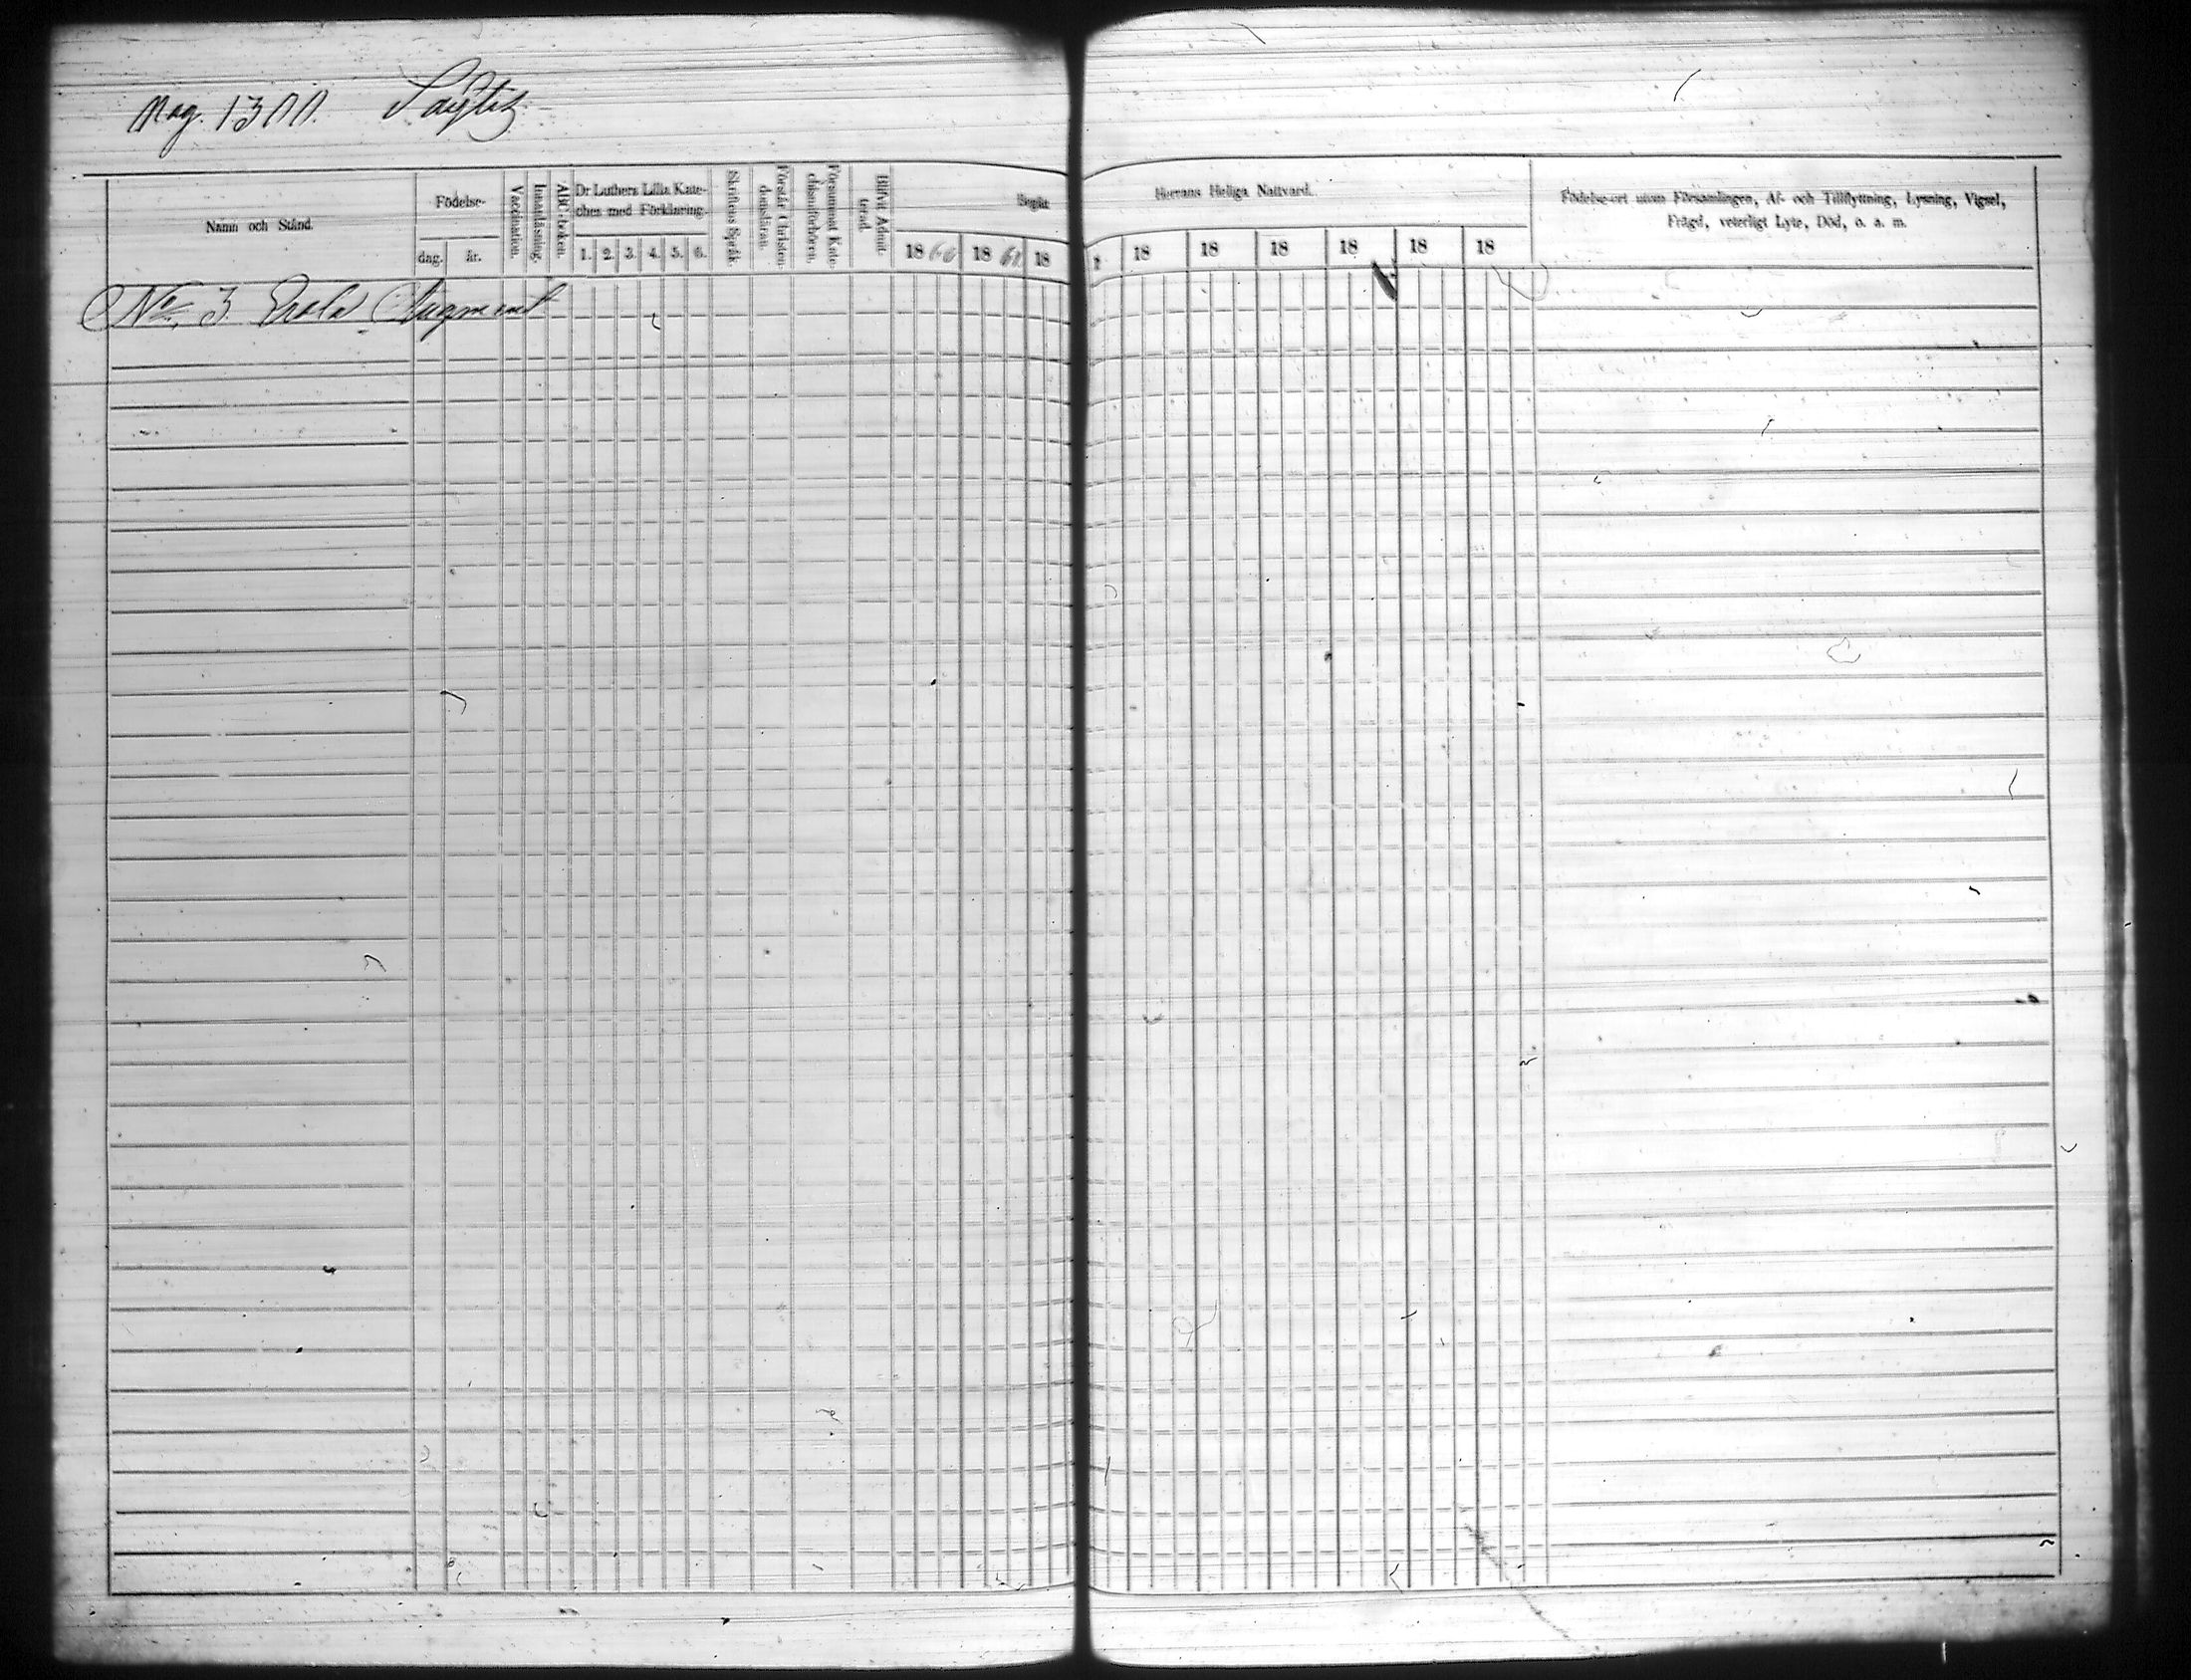 Pag. 130
Namn och Stånd.
Födelse-
dag.
år.
Vaccination.
Innanläsning.
ABC-boken.
Dr Luthers Lilla Kate-
ches med Förklaring.
1. 2. 3. 4. 5. 6.
Skriftens Språk.
Förstår Christen-
domsläran.
Försummat Kate-
chismiförhören.
Blifvit Admit-
terad.
Begått
1860 1861 18
Herrans Heliga Nattvard.
18 18 18 18 18 18
Födelse-ort utom Församlingen, Af- och Tillflyttning, Lysning, Vigsel,
Frägd, veterligt Lyte, Död, o. a. m.
No 3 Erola Augment